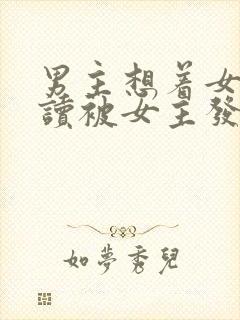 男主想着女
讀被女主發
如夢秀兒